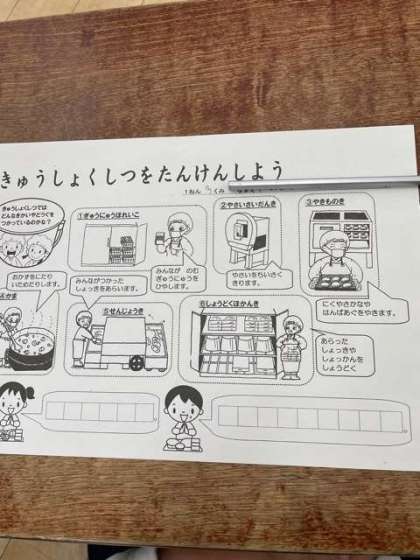 きゅうしょくしつをたんけんしよう
1ねん
くみ
きゅうしょくしつでは
どんなきかいやどうぐを
つかっているのかな?
①ぎゅうにゅうほれいこ
②やさいさいだんき
③やきものき
みんなが のむ
ぎゅうにゅうを
ひやします。
やさいをちいさく
きります。
にくやさかなや
はんばあぐをやきます。
おかずをにたり
いためたりします。
みんながつかった
しょっきをあらいます。
④かま
⑤せんじょうき
⑥しょうどくほかんき
あらった
しょっきや
しょっかんを
しょうどく